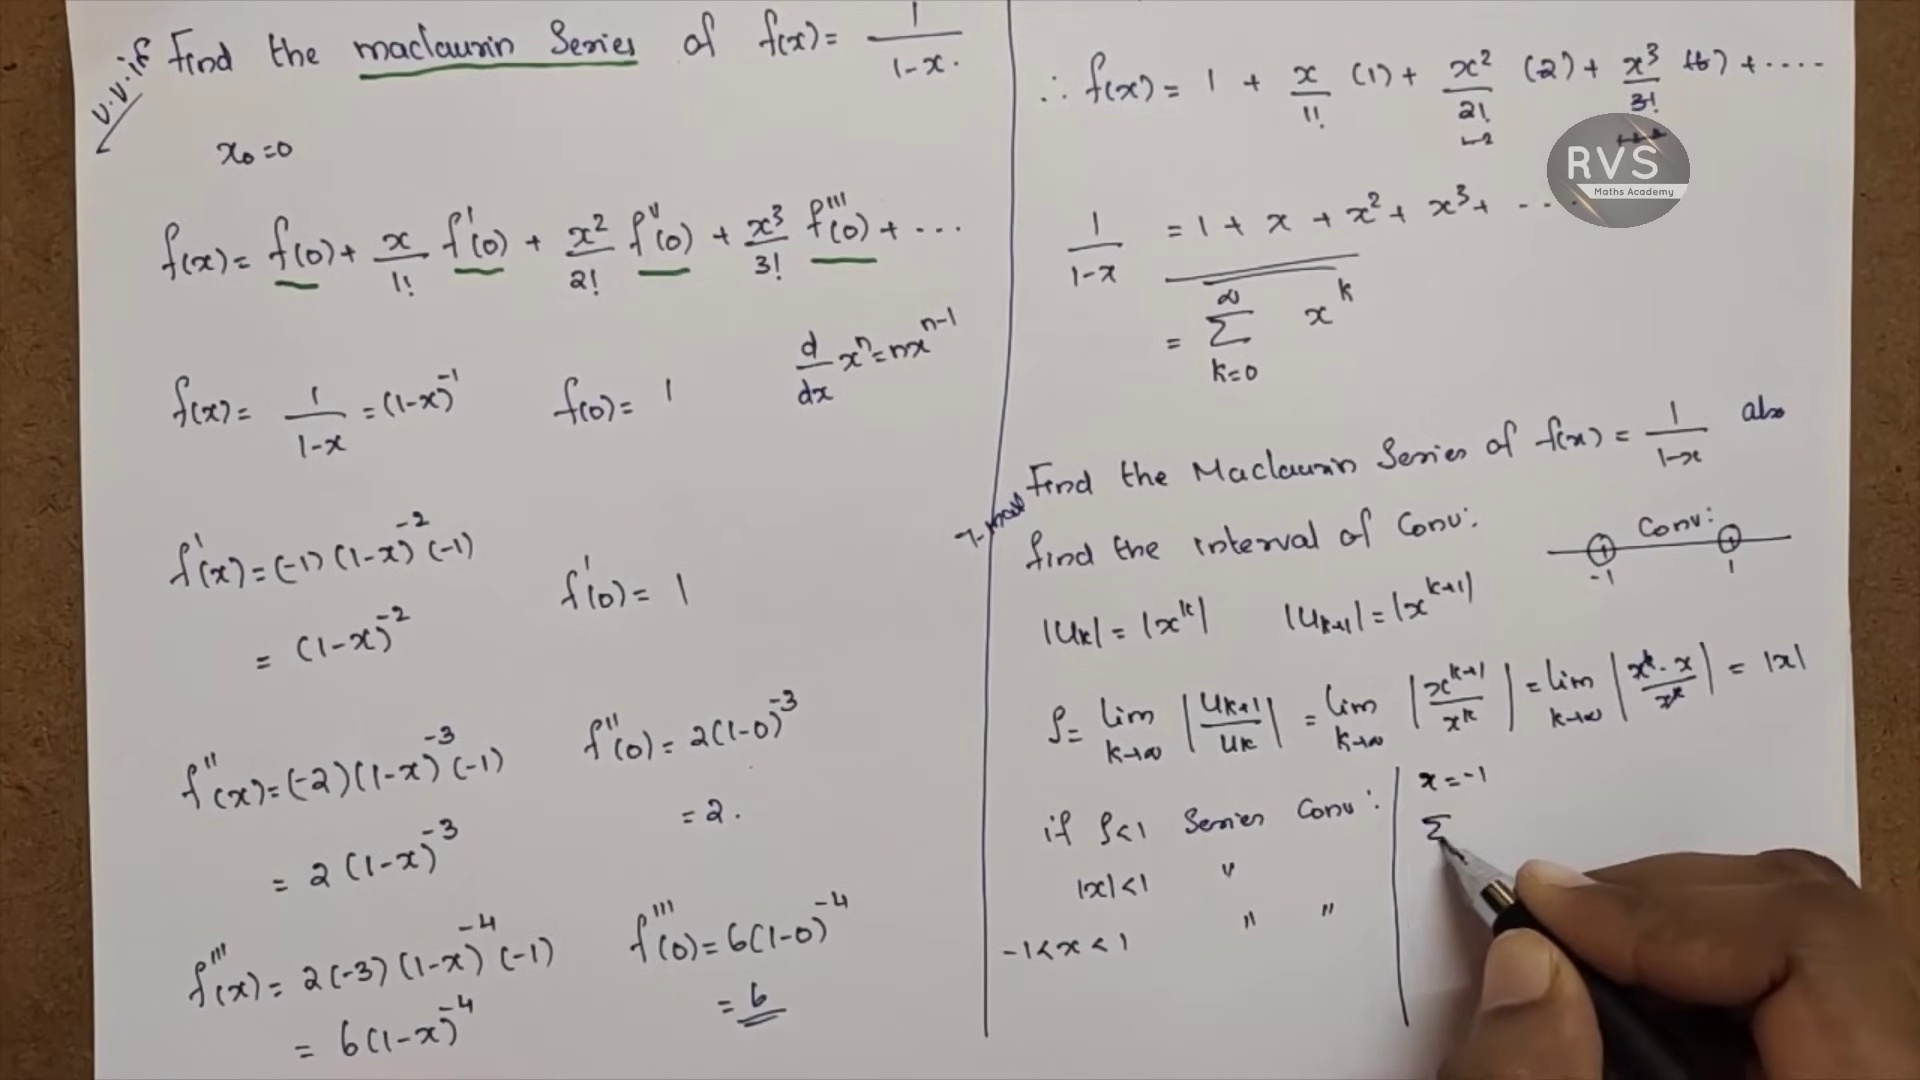 v.v.if Find the maclaurin Series of f(x) = 1/1-x.
x₀=0
f(x) = f(0) + x/1! f'(0) + x²/2! f''(0) + x³/3! f'''(0) + ...
d/dx xⁿ = nxⁿ⁻¹
f(x) = 1/1-x = (1-x)⁻¹ f(0) = 1
f'(x) = (-1)(1-x)⁻²(-1)
= (1-x)⁻² f'(0) = 1
f''(x) = (-2)(1-x)⁻³(-1) f''(0) = 2(1-0)⁻³
= 2(1-x)⁻³ = 2.
f'''(x) = 2(-3)(1-x)⁻⁴(-1) f'''(0) = 6(1-0)⁻⁴
= 6(1-x)⁻⁴ = 6
∴ f(x) = 1 + x/1! (1) + x²/2! (2) + x³/3! (6) + ....
RVS
Maths Academy
1/1-x = 1 + x + x² + x³ + ....
= ∑ k=0 ∞ xᵏ
Find the Maclaurin Series of f(x) = 1/1-x also
find the interval of Conv:
Conv:
-1 1
|Uₖ| = |xᵏ| |Uₖ₊₁| = |xᵏ⁺¹|
ρ = lim k→∞ |Uₖ₊₁/Uₖ| = lim k→∞ |xᵏ⁺¹/xᵏ| = lim k→∞ |xᵏ·x/xᵏ| = |x|
if ρ<1 Series Conv:
|x|<1 "
-1<x<1 " "
x=-1
∑